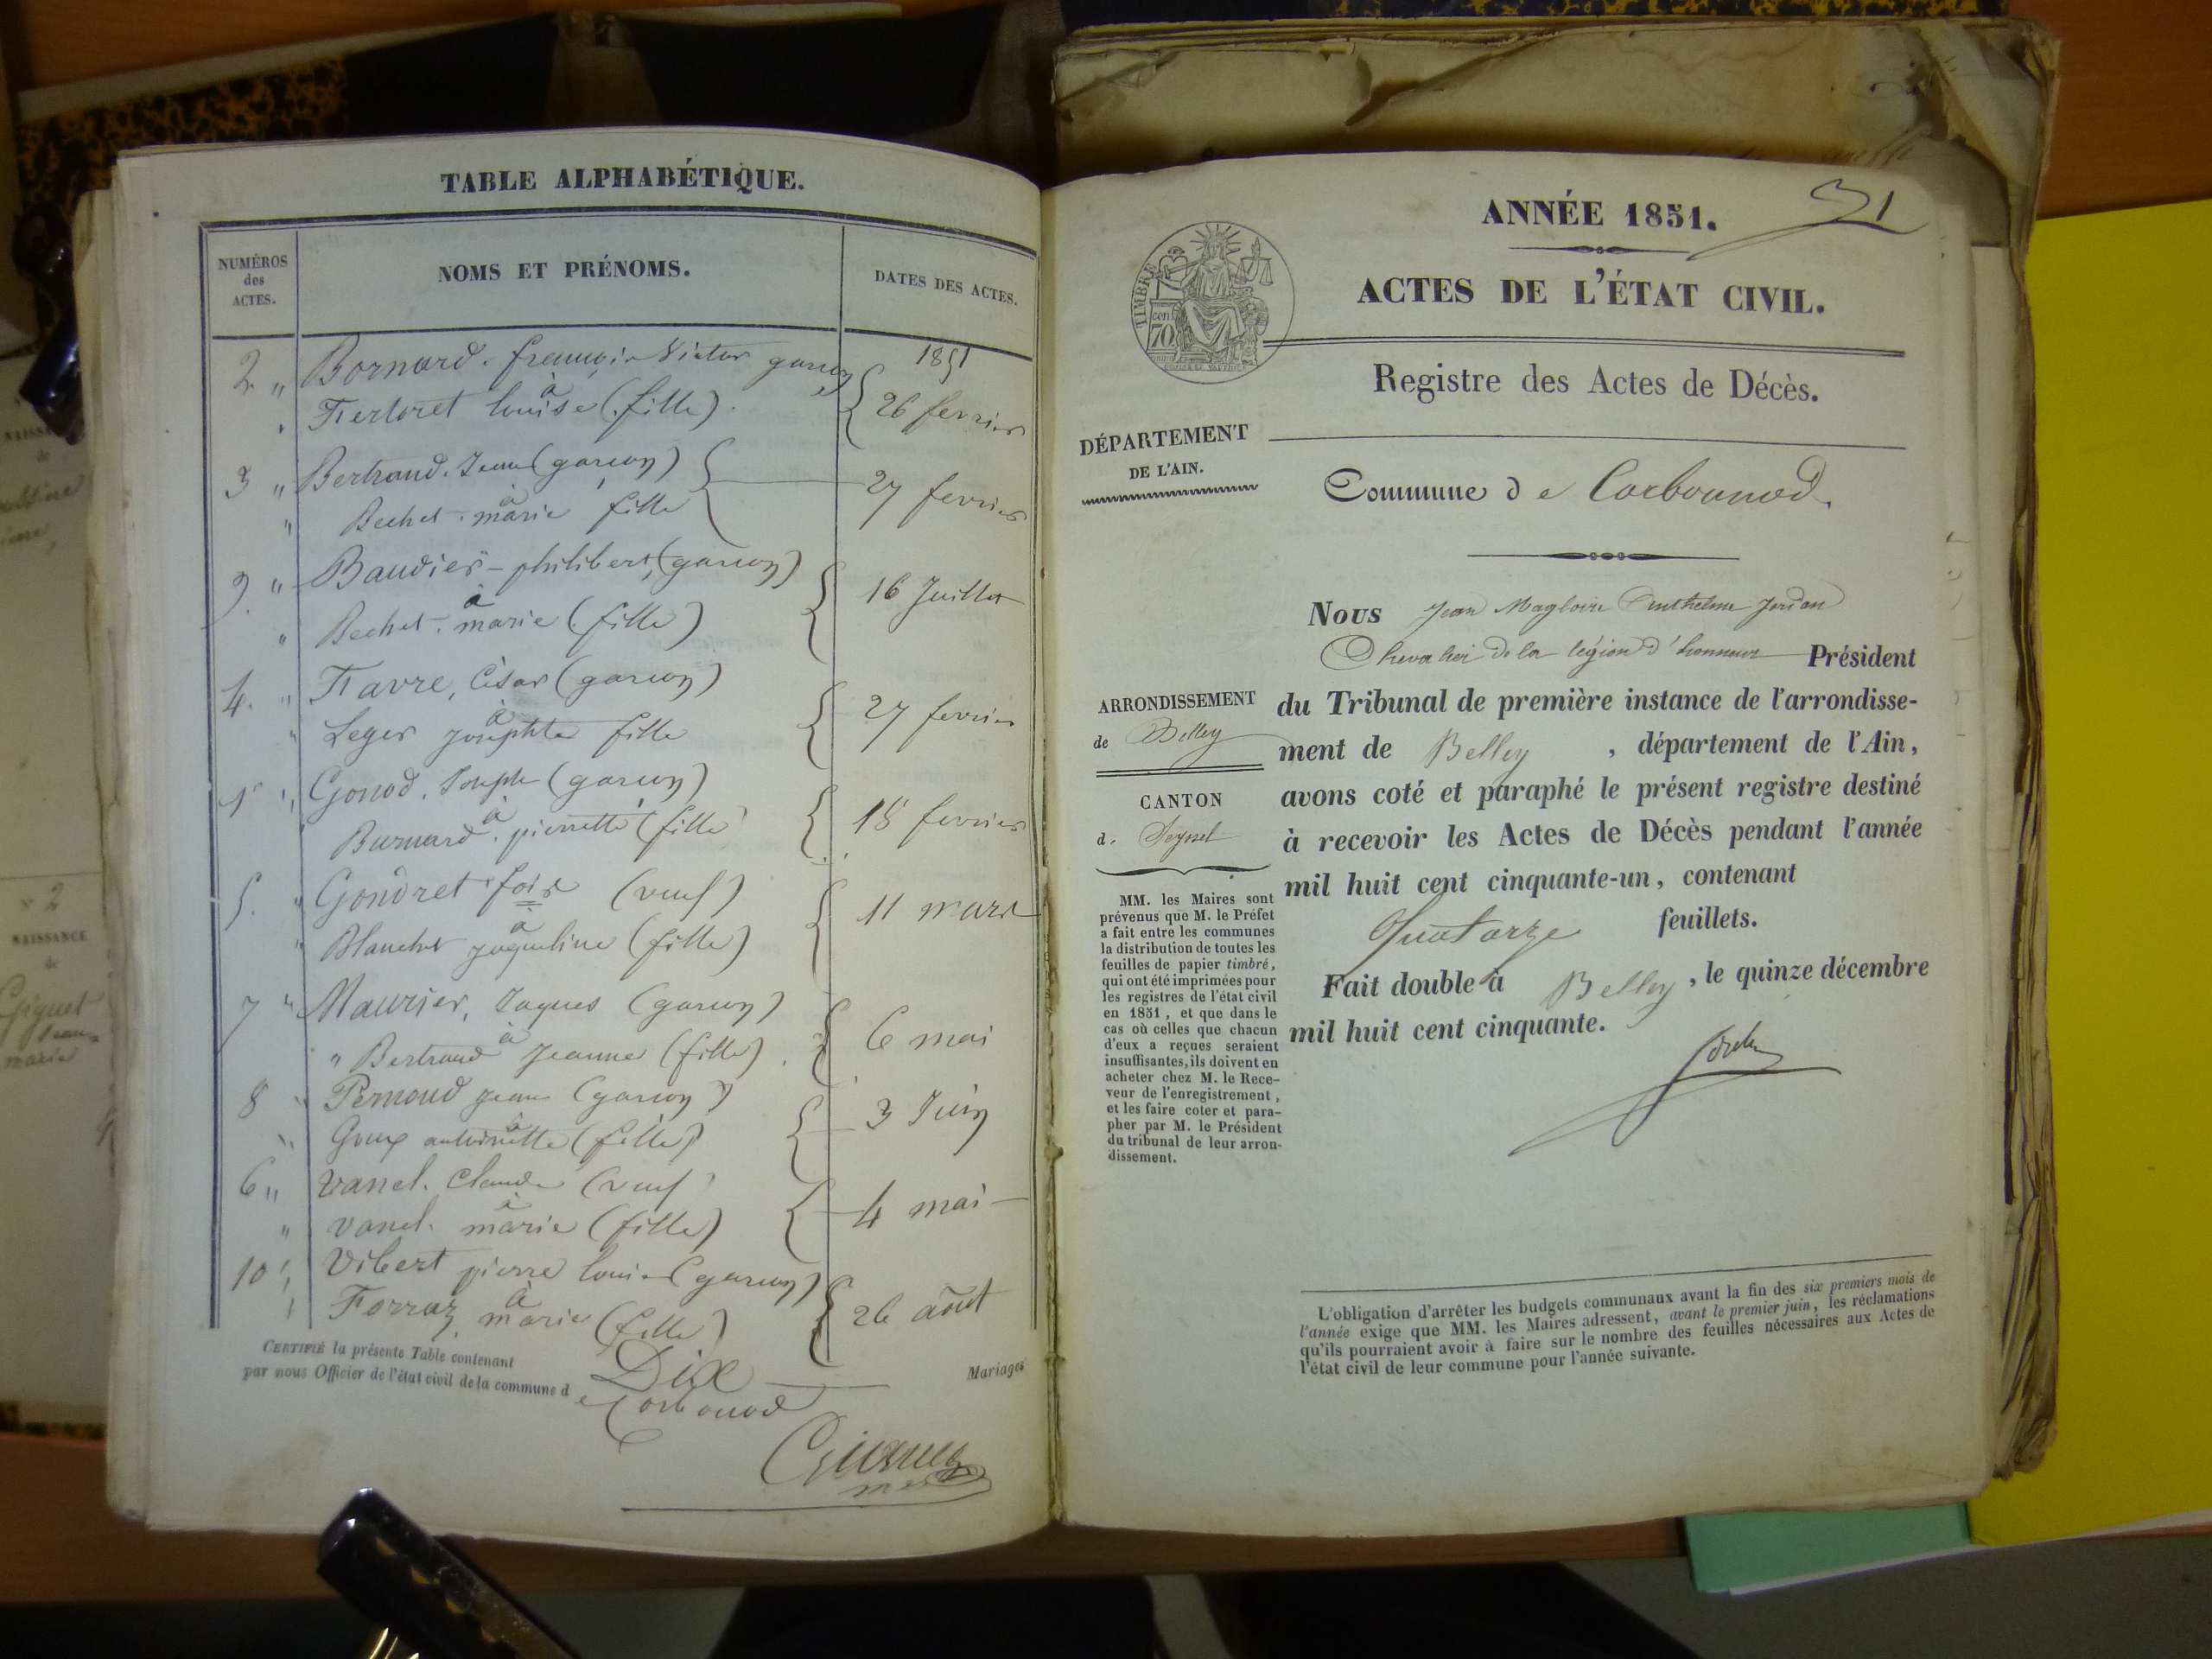 TABLE ALPHABÉTIQUE.
NUMÉROS
des
ACTES.
NOMS ET PRÉNOMS.
DATES DES ACTES.
1851
2 " Bornard. françois Victor garçon
à
Fertoret louise (fille).
26 fevrier
3 " Bertrand. Jean (garçon)
à
" Bechet. marie fille
27 fevrier
9. " Baudier - philibert, (garçon)
à
" Bechet. marie (fille)
16 Juillet
4. " Favre, César (garçon)
à
" Leger josephte fille
27 fevrier
1er " Gonod. Joseph (garçon)
à
Burnard. pierrette (fille
18 fevrier
5. " Gondret fois (veuf)
à
" Blanchet jaqueline (fille)
11 mars
7 " Maurier, Jaques (garçon)
à
" Bertrand Jeanne (fille)
6 mai
8 " Pernoud jean (garçon)
à
" Goux antoinette (fille)
3 Juin
6 " Vanel. Claude (veuf
à
" vanel. marie (fille)
4 mai
10 " Vibert pierre louis (garçon)
à
" Forraz, marie (fille)
26 août
CERTIFIÉ la présente Table contenant Dix Mariages
par nous Officier de l'état civil de la commune de Corbonod
ANNÉE 1851.
TIMBRE
70
ACTES DE L'ÉTAT CIVIL.
Registre des Actes de Décès.
DÉPARTEMENT
DE L'AIN.
Commune de Corbonod.
Nous Jean Magloire Anthelme Jordan
Chevalier de la légion d'honneur Président
du Tribunal de première instance de l'arrondisse-
ment de Belley, département de l'Ain,
avons coté et paraphé le présent registre destiné
à recevoir les Actes de Décès pendant l'année
mil huit cent cinquante-un, contenant
Quatorze feuillets.
Fait double à Belley, le quinze décembre
mil huit cent cinquante.
ARRONDISSEMENT
de Belley
CANTON
d. Seyssel
MM. les Maires sont
prévenus que M. le Préfet
a fait entre les communes
la distribution de toutes les
feuilles de papier timbré,
qui ont été imprimées pour
les registres de l'état civil
en 1851, et que dans le
cas où celles que chacun
d'eux a reçues seraient
insuffisantes, ils doivent en
acheter chez M. le Rece-
veur de l'enregistrement,
et les faire coter et para-
pher par M. le Président
du tribunal de leur arron-
dissement.
L'obligation d'arrêter les budgets communaux avant la fin des six premiers mois de
l'année exige que MM. les Maires adressent, avant le premier juin, les réclamations
qu'ils pourraient avoir à faire sur le nombre des feuilles nécessaires aux Actes de
l'état civil de leur commune pour l'année suivante.
N° 2
NAISSANCE
de
marie